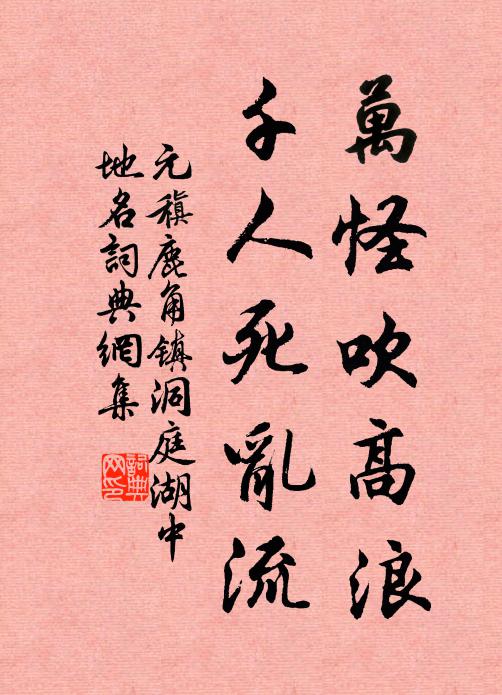 萬怪吹高浪
千人死亂流
元稹鹿角镇洞庭湖中
地名詞典網集
詞典网印